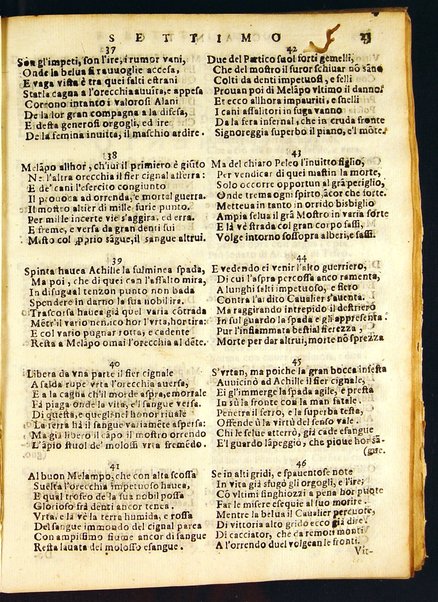 SETTIMO
37
Son gl'impeti, son l'ire, i rumor vani,
Onde la belua si rauuoglie accesa,
E vaga vista è tra quei salti estrani
Starla cagna a l'orecchia auuita, e appesa
Corrono intanto i valorosi Alani
De la lor gran compagna a la difesa,
E desta generosi orgogli, ed ire
De la femina inuitta, il maschio ardire.
38
Melāpo allhor, ch'iui il primiero è giūto
Ne l'altra orecchia il fier cignal afferra:
E de' cani l'esercito congiunto
Il pouoda ad orrenda, e mortal guerra.
Il mostro altier di mille furie punto,
Per mille incerte vie s'aggira, ed erra.
E freme, e versa da gran denti sui
Misto col pprio sāgue, il sangue altrui.
39
Spinta hauea Achille la fulminea spada,
Ma poi, che di quei can l'assalto mira,
In disugual tenzon punto non bada
Spendere in darno la sua nobil ira.
Trascorsa hauea già quel varia cōtrada
Mētr'il vario nemico hor l'vrta, hor tira:
E col vario pugnar rotta, e cadente
Resta a Melāpo omai l'orecchia al dēte.
40
Libera da vna parte il fier cignale
A salda rupe vrta l'orecchia auersa,
E a la cagna ch'il morde aspra, e mortale
Fā piaga onde la vita, e'l sangue versa.
Di questa, e quegli nel honor riuale
La terra hà il sangue variamēte aspersa:
Ma già libero il capo il mostro orrendo
L'āpio stuol de' molossi vrta fremēdo.
41
Al buon Melampo, che con alta scossa
Suelsa l'orecchia impetuoso hauea,
E qual trofeo de la sua nobil possa
Glorioso frà denti ancor tenea.
Vrta, e la vè la terra humida, e rossa
Del sangue immondo del cignal parea
Con ampissimo fiume ancor di sangue
Resta lauata del molosso esangue.
42
Due del Partico suol forti gemelli,
Che del mostro il furor schiuar nō sāno
Colti da denti impetuosi, e felli
Prouan poi di Melāpo vltimo il danno.
Et ecco allhora impauriti, e snelli
I cani assalitori in fuga vanno
Da la fera infernal, che in cruda fronte
Signoreggia superbo il piano, e'l mōte.
43
Ma del chiaro Peleo l'inuitto figlio,
Per vendicar di quei mastin la morte,
Solo occorre opportun al grā periglio,
Onde tremaa ogni spirto, ācor che forte.
Metteua in tanto in orrido bisbiglio
Ampia selua il grā Mostro in varia sorte
E là ve strada col gran corpo fassi,
Volge intorno sossopra alberi, e sassi.
44
E vedendo ei venir l'alto guerriero,
Di cui l'aspra percossa anco ramenta,
A lunghi salti impetuoso, e fiero
Contra l'ardito Caualier s'auenta.
Ma raggirando intrepido il destriero
In sul guardo la spada egli appresenta.
Pur l'infiammata bestial fierezza,
Morte per dar altrui, morte nō sprezza
45
S'vrtan, ma poiche la gran bocca infesta
Auuicinò ad Achille il fier cignale,
Ei gl'immerge la spada agile, e presta
In sù la fronte con la man fatale.
Penetra il ferro, e la superba testa,
Offende ù la virtù del senso vale.
Chi le selue atterrò, già cade esangue
E'l guardo lāpeggio, che pioue hor sā-
(gue.
46
Se in alti gridi, e spauentose note
In vita già sfogò gli orgogli, e l'ire;
Cō vltimi singhiozzi a pena hor puote
Far le misere esequie al suo morire.
Mentre la belua il Caualier percuote,
Di vittoria alto grido ecco già dire.
Di cacciator, che da remoti monti
A l'orrendo duel volgean le fronti.
Vit-